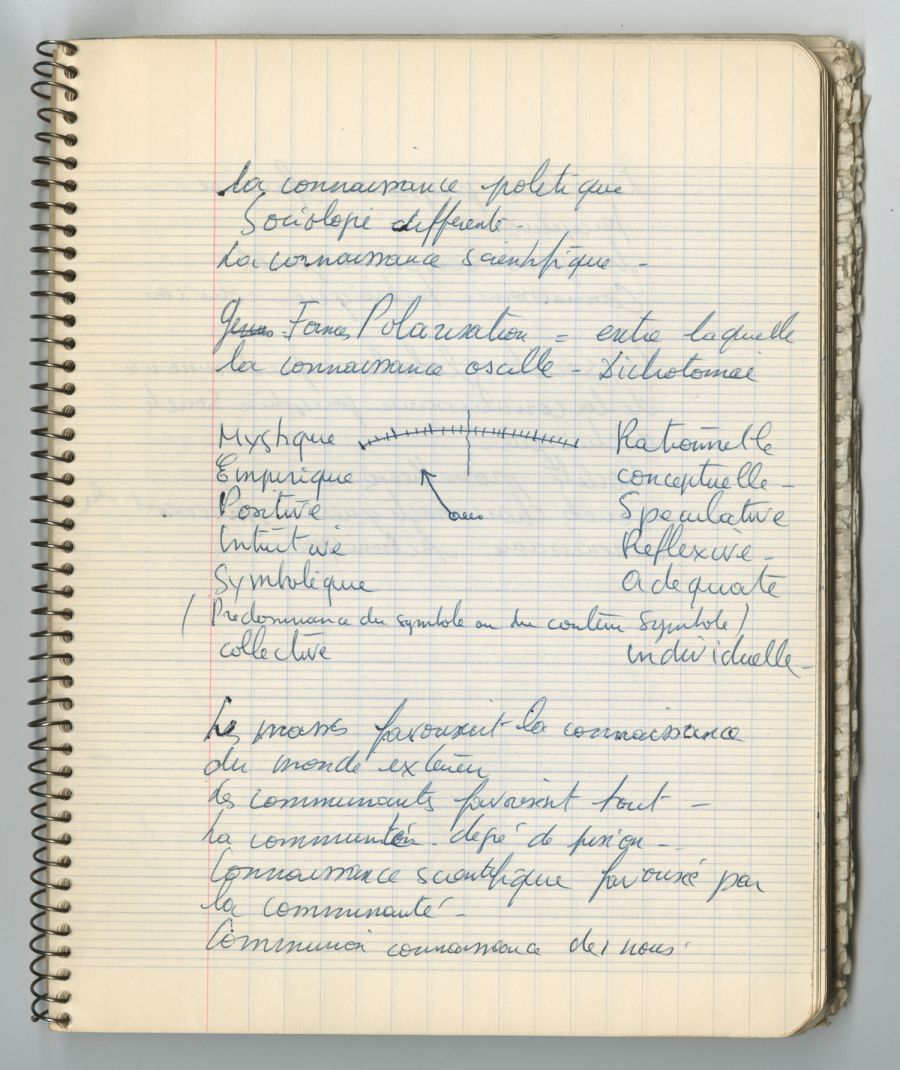 La connaissance politique
Sociologie différente -
La connaissance scientifique -
Formes Polarisation = entre laquelle
la connaissance oscille - Dichotomie
Mystique Rationnelle
Empirique conceptuelle -
Positive Spéculative
Intuitive Réflexive -
Symbolique adequate
(Prédominance du symbole ou du contenu symbole)
collective individuelle -
Les masses favorisent la connaissance
du monde extérieur
Les communautés favorisent tout -
La communion - degré de fusion - -
Connaissance scientifique favorisée par
la communauté -
Communion connaissance des nous